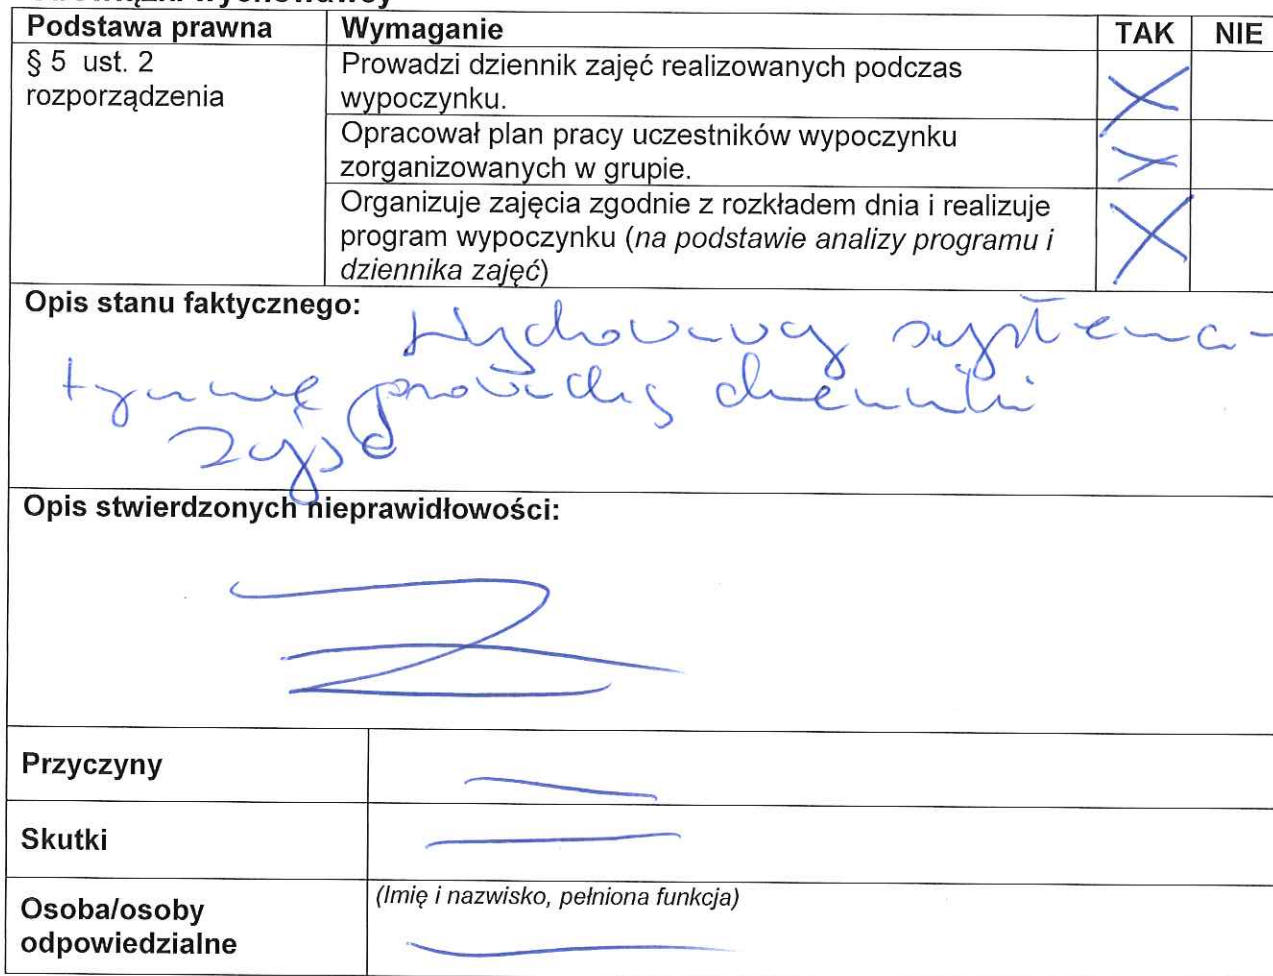 wychowawcy
Podstawa prawna Wymaganie TAK NIE
§ 5 ust. 2 rozporządzenia
Prowadzi dziennik zajęć realizowanych podczas
wypoczynku.
Opracował plan pracy uczestników wypoczynku
zorganizowanych w grupie.
Organizuje zajęcia zgodnie z rozkładem dnia i realizuje
program wypoczynku (na podstawie analizy programu i
dziennika zajęć)
Opis stanu faktycznego:
Wychowawcy systema-
tycznie prowadzą dzienniki
zajęć
Opis stwierdzonych nieprawidłowości:
Przyczyny
Skutki
Osoba/osoby
odpowiedzialne
(Imię i nazwisko, pełniona funkcja)